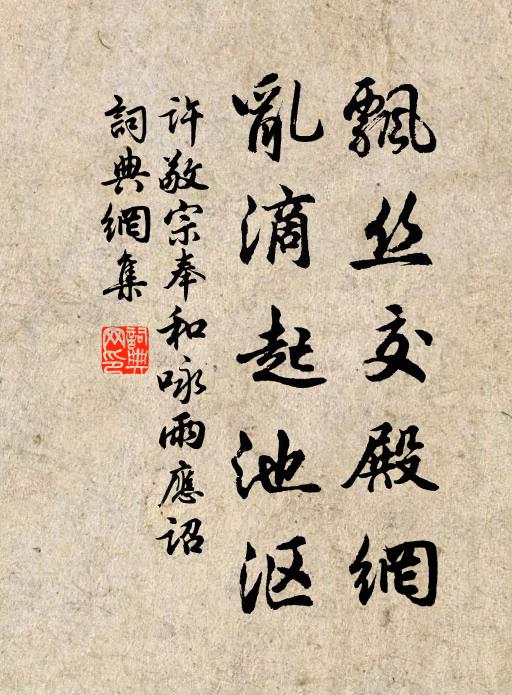 飄丝交殿網
亂滴起池沤
许敬宗奉和咏雨應詔
詞典網集
詞典
网印